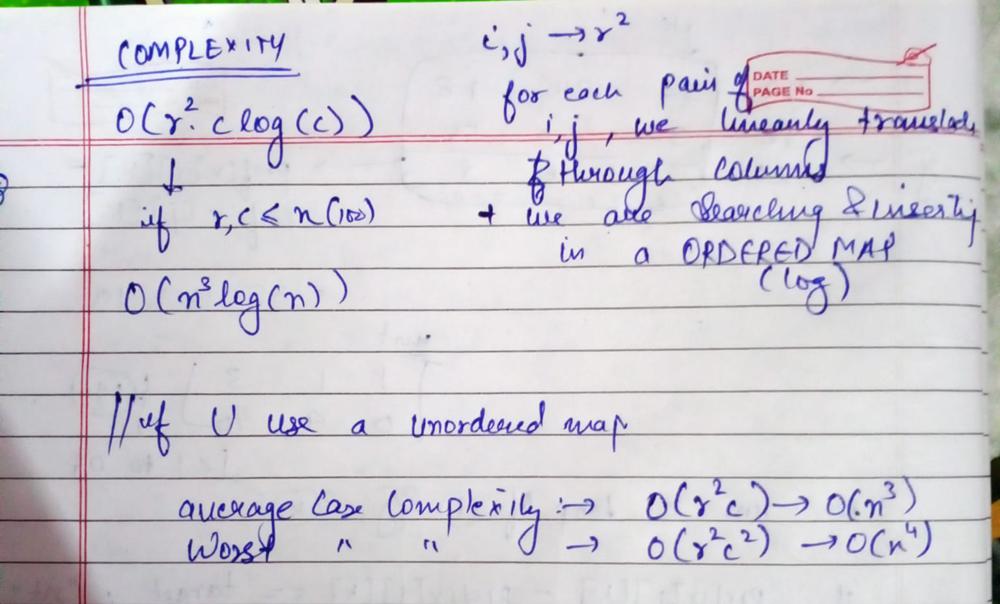 COMPLEXITY
O(r². c log(c))
↓
if r,c ≤ n(100)
O(n³log(n))
i,j → r²
for each pair of
DATE
PAGE No
i,j, we linearly translate
through columns
+ we are searching & inserting
in a ORDERED MAP
(log)
//if U use a unordered map
average Case Complexity :→ O(r²c) → O(n³)
Worst " " → O(r²c²) → O(n⁴)